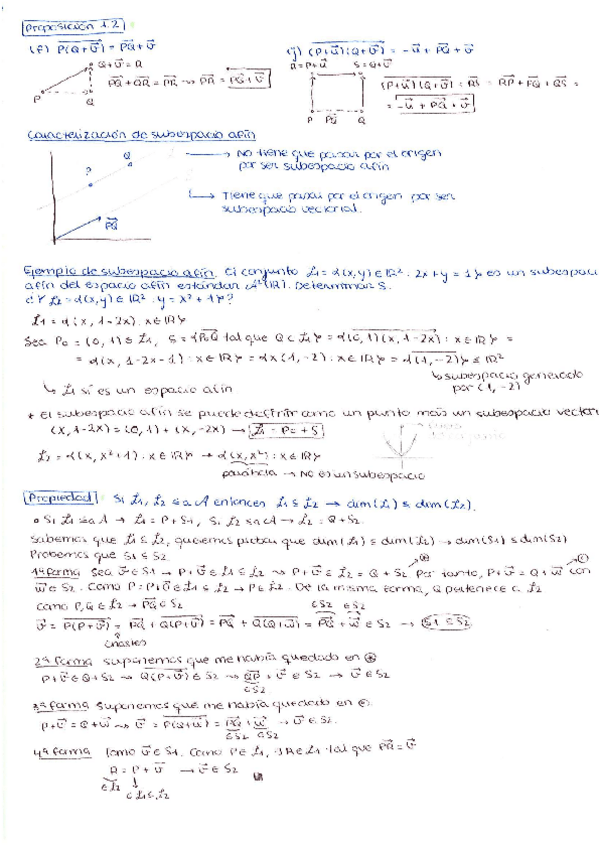 Proposición 1.2
(f) P(Q+v⃗) = PQ⃗ + v⃗
(j) (P+u⃗)(Q+v⃗) = -u⃗ + PQ⃗ + v⃗
Q+v⃗ = R
R = P+u⃗ S = Q+v⃗
PQ⃗ + QR⃗ = PR⃗ ⇝ PR⃗ = PQ⃗ + v⃗
(P+u⃗)(Q+v⃗) = RS⃗ = RP⃗ + PQ⃗ + QS⃗ =
= -u⃗ + PQ⃗ + v⃗
P Q
P PQ⃗ Q
Caracterización de subespacio afín
Q
?
PQ⃗
→ No tiene que pasar por el origen
por ser subespacio afín
→ Tiene que pasar por el origen por ser
subespacio vectorial.
Ejemplo de subespacio afín. El conjunto L₁ = {(x,y) ∈ ℝ² : 2x + y = 1} es un subespacio
afín del espacio afín estándar A²(ℝ). Determinar S.
¿Y L₂ = {(x,y) ∈ ℝ² : y = x² + 1}?
L₁ = {(x, 1-2x) : x ∈ ℝ}
Sea P₀ = (0,1) ∈ L₁, S = {P₀Q⃗ tal que Q ∈ L₁} = {(0,1)(x,1-2x) : x ∈ ℝ} =
= {(x, 1-2x-1) : x ∈ ℝ} = {x(1,-2) : x ∈ ℝ} = {(1,-2)} ≤ ℝ²
↳ subespacio generado
por (1,-2)
↳ L₁ sí es un espacio afín
* El subespacio afín se puede definir como un punto más un subespacio vector
(x, 1-2x) = (0,1) + (x,-2x) → L₁ = P₀ + S
L₂ = {(x, x²+1) : x ∈ ℝ} → {(x,x²) : x ∈ ℝ}
parábola → No es un subespacio
Propiedad Si L₁, L₂ ≤a A entonces L₁ ≤ L₂ → dim(L₁) ≤ dim(L₂).
• Si L₁ ≤a A → L₁ = P + S₁, Si L₂ ≤a A → L₂ = Q + S₂.
Sabemos que L₁ ≤ L₂, queremos probar que dim(L₁) ≤ dim(L₂) → dim(S₁) ≤ dim(S₂)
Probemos que S₁ ≤ S₂
1ª forma Sea v⃗ ∈ S₁ → P + v⃗ ∈ L₁ ≤ L₂ ⇝ P + v⃗ ∈ L₂ = Q + S₂ Por tanto, P + v⃗ = Q + w⃗ con
w⃗ ∈ S₂. Como P = P + 0⃗ ∈ L₁ ≤ L₂ → P ∈ L₂. De la misma forma, Q pertenece a L₂
Como P, Q ∈ L₂ → PQ⃗ ∈ S₂
∈S₂ ∈S₂
v⃗ = P(P+v⃗) = PQ⃗ + Q(P+v⃗) = PQ⃗ + Q(Q+w⃗) = PQ⃗ + w⃗ ∈ S₂ → S₁ ≤ S₂
Chasles
2ª forma Suponemos que me había quedado en ⊛
P + v⃗ ∈ Q + S₂ ⇝ Q(P+v⃗) ∈ S₂ ⇝ QP⃗ + v⃗ ∈ S₂ → v⃗ ∈ S₂
∈S₂
3ª forma Suponemos que me había quedado en
P + v⃗ = Q + w⃗ ⇝ v⃗ = P(Q+w⃗) = PQ⃗ + w⃗ → v⃗ ∈ S₂.
∈S₂ ∈S₂
4ª forma Tomo v⃗ ∈ S₁. Como P ∈ L₁, ∃R ∈ L₁ tal que PR⃗ = v⃗
R = P + v⃗ → v⃗ ∈ S₂
∈L₂
∈ L₁ ≤ L₂